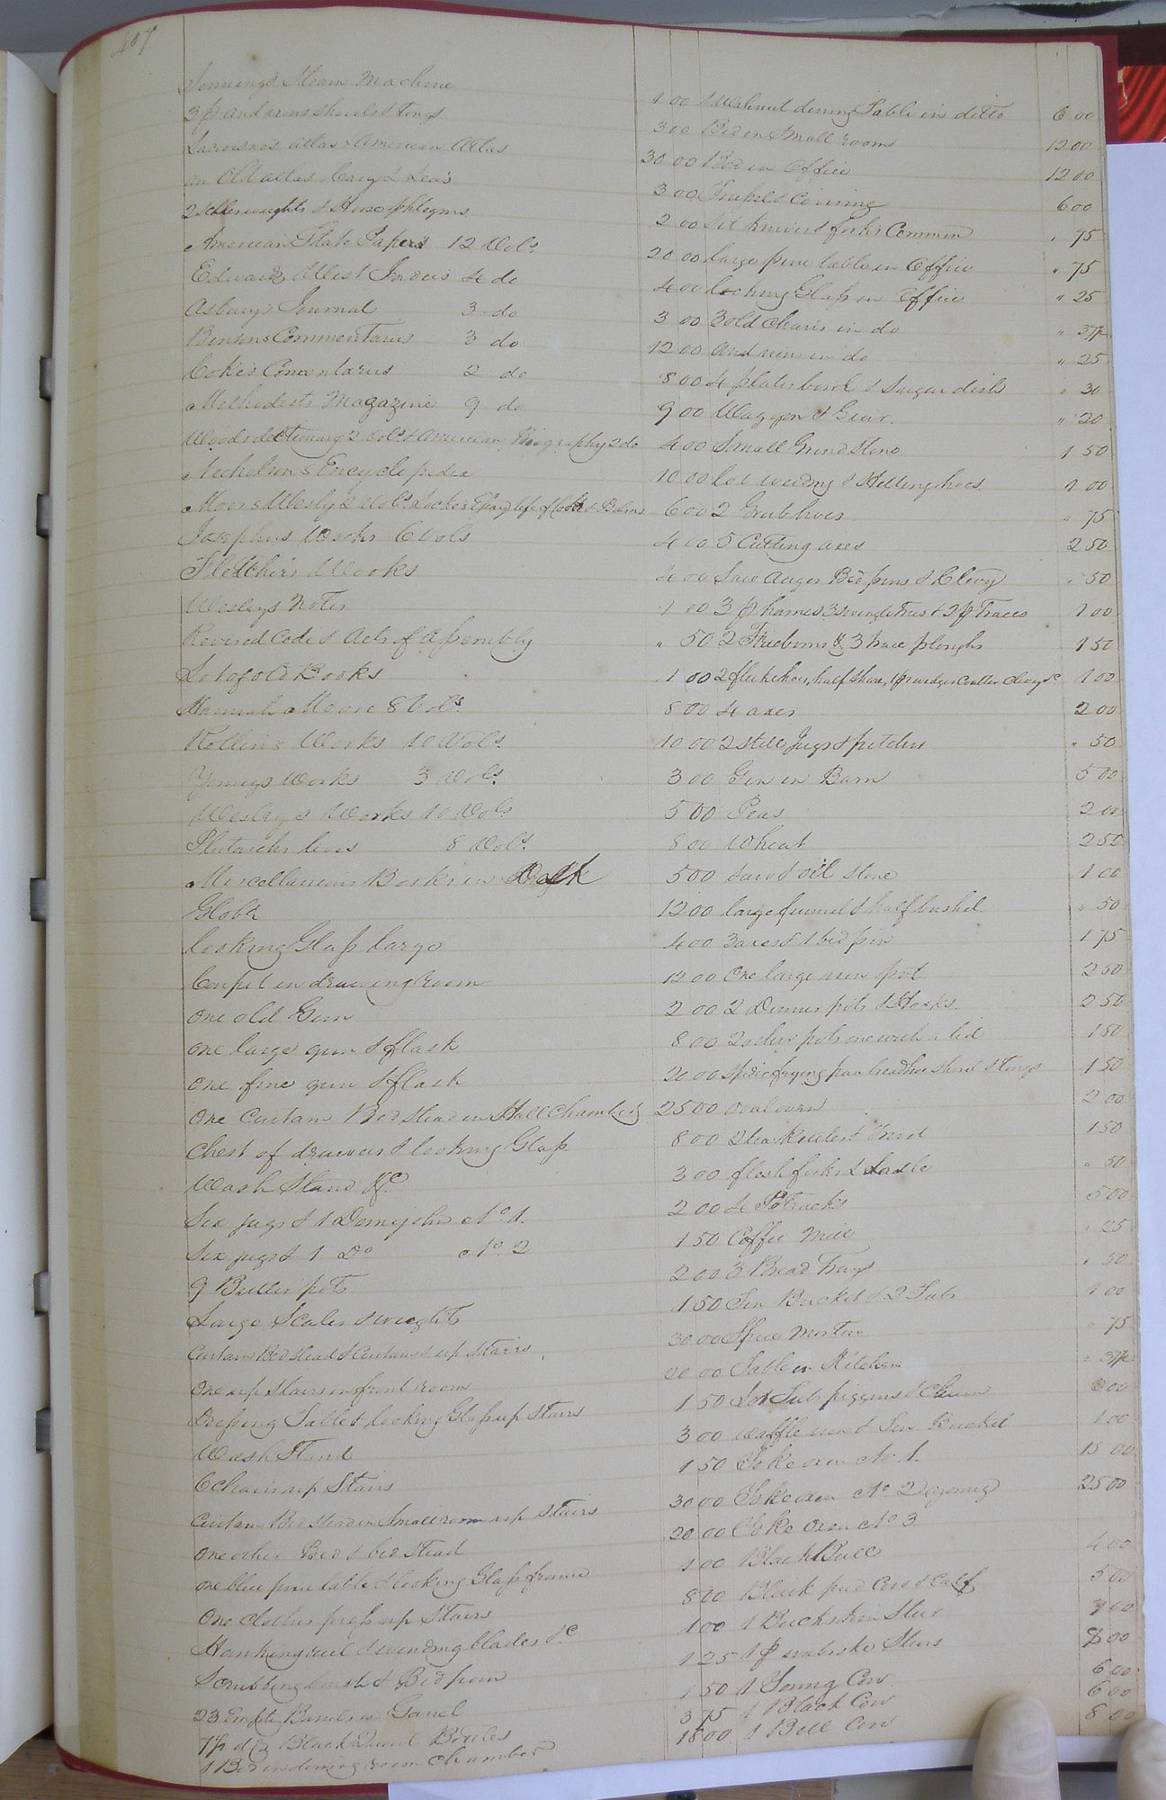 407
Jennings Steam Machine 1 00
3 pr andirons shovels & tongs 3 00
Atlas & American Atlas 30 00
an Old atlas Cary & Lea's 3 00
2 & Horse phlegms 2 00
American State Papers 12 Vols 20 00
Edwards West Indies 4 do 4 00
Asbury's Journal 3 do 3 00
Commentaries 3 do 12 00
Coke's Commentaries 2 do 8 00
Methodist Magazine 9 do 9 00
Woods dictionary 2 vols & American Biography 2 do 4 00
Nicholson's Encyclopedia 10 00
Moore's Wesly 2 Vols Locke's Essay life of 6 00
Josephus Works 6 Vols 4 00
Fletcher's Works 4 00
Wesleys Notes 1 00
Revised Code & Acts of Assembly " 50
Lot of old Books 1 00
Hannah Moore 8 Vols. 8 00
Rollin's Works 10 Vols. 10 00
Youngs Works 3 Vols. 3 00
Wesley's Works 10 Vols 5 00
Plutarchs lives 8 Vols. 8 00
Miscellaneous Books in Desk 5 00
Globe 12 00
looking Glass large 4 00
Carpet in drawing room 12 00
One old Gun 2 00
one large gun & flask 8 00
one fine gun & flask 20 00
One Curtain Bed Stead in Hall Chamber 25 00
Chest of drawers & looking Glass 8 00
Wash Stand &c 3 00
Six jugs & 1 Demijohn No. 1. 2 00
Six jugs & 1 Do No. 2 1 50
9 Butter pots 2 00
Large Scales & weights 1 50
Curtain Bed Stead & Curtains up Stairs 30 00
One up Stairs in front room 20 00
Dressing Table & looking Glass up Stairs 1 50
Wash Stand 3 00
6 Chairs up Stairs 1 50
Curtain Bed Stead in Small room up Stairs 30 00
One other Bed & bed Stead 20 00
one blue pine table & looking Glass frame 1 00
One clothes press up Stairs 8 00
Hanking reel & winding blades &c 1 00
Scrubbing brush & Bed pan 1 25
23 Empty Barrels 1 50
Black Quart Bottles 3 75
1 Bed in dining room Chamber 18 00
1 Walnut dining Table in ditto 6 00
Bed in Small room 12 00
Bed in Office 12 00
6 00
Set knives & forks Common " 75
Large pine table in Office " 75
Looking Glass in Office " 25
3 old Chairs in do " 37½
Andirons in do " 25
4 plates bowl & Sugar dish " 30
Waggon & Gear. " 20
Small Grind Stone 1 50
Lot weeding & Hilling hoes 1 00
2 Grub hoes " 75
5 Cutting axes 2 50
Saw Auger Bed pins & Clevy " 50
3 pr hames 3 swingletrees & 2 pr Traces 1 00
2 & 3 trace ploughs 1 50
2 fluke hoes, half Share, 1 pr wedges Coulter Clevy &c 1 00
4 axes 2 00
2 still jugs & pitcher " 50
Gin in Barn 5 00
Peas 2 00
Wheat 2 50
& oil Stone 1 00
large funnel & half bushel " 50
3 axes & 1 bed pin 1 75
One large iron pot 2 50
2 Dinner pots & Hooks 2 50
2 other pots one with a lid 1 50
Spider frying pan bread hoe shovel & tongs 1 50
oval oven 2 00
2 tea Kettles & Trivet 1 50
flesh fork & Ladle " 50
4 Potracks 5 00
Coffee Mill " 25
3 Bread Trays " 50
Tin Bucket & 2 Tubs 1 00
Spice Mortar " 75
Table in Kitchen " 37½
Lot Tubs piggins & Churn
waffle iron & Tin Bucket 1 00
Yoke oxen No. 1. 15 00
Yoke oxen No 2 young 25 00
Yoke Oxen No 3
Black Bull 4 00
Black pied Cow & Calf 5 00
1 Buckskin Steer
1 pr Steers 8 00
1 Young Cow 6 00
1 Black Cow 6 00
1 Bell Cow 8 00